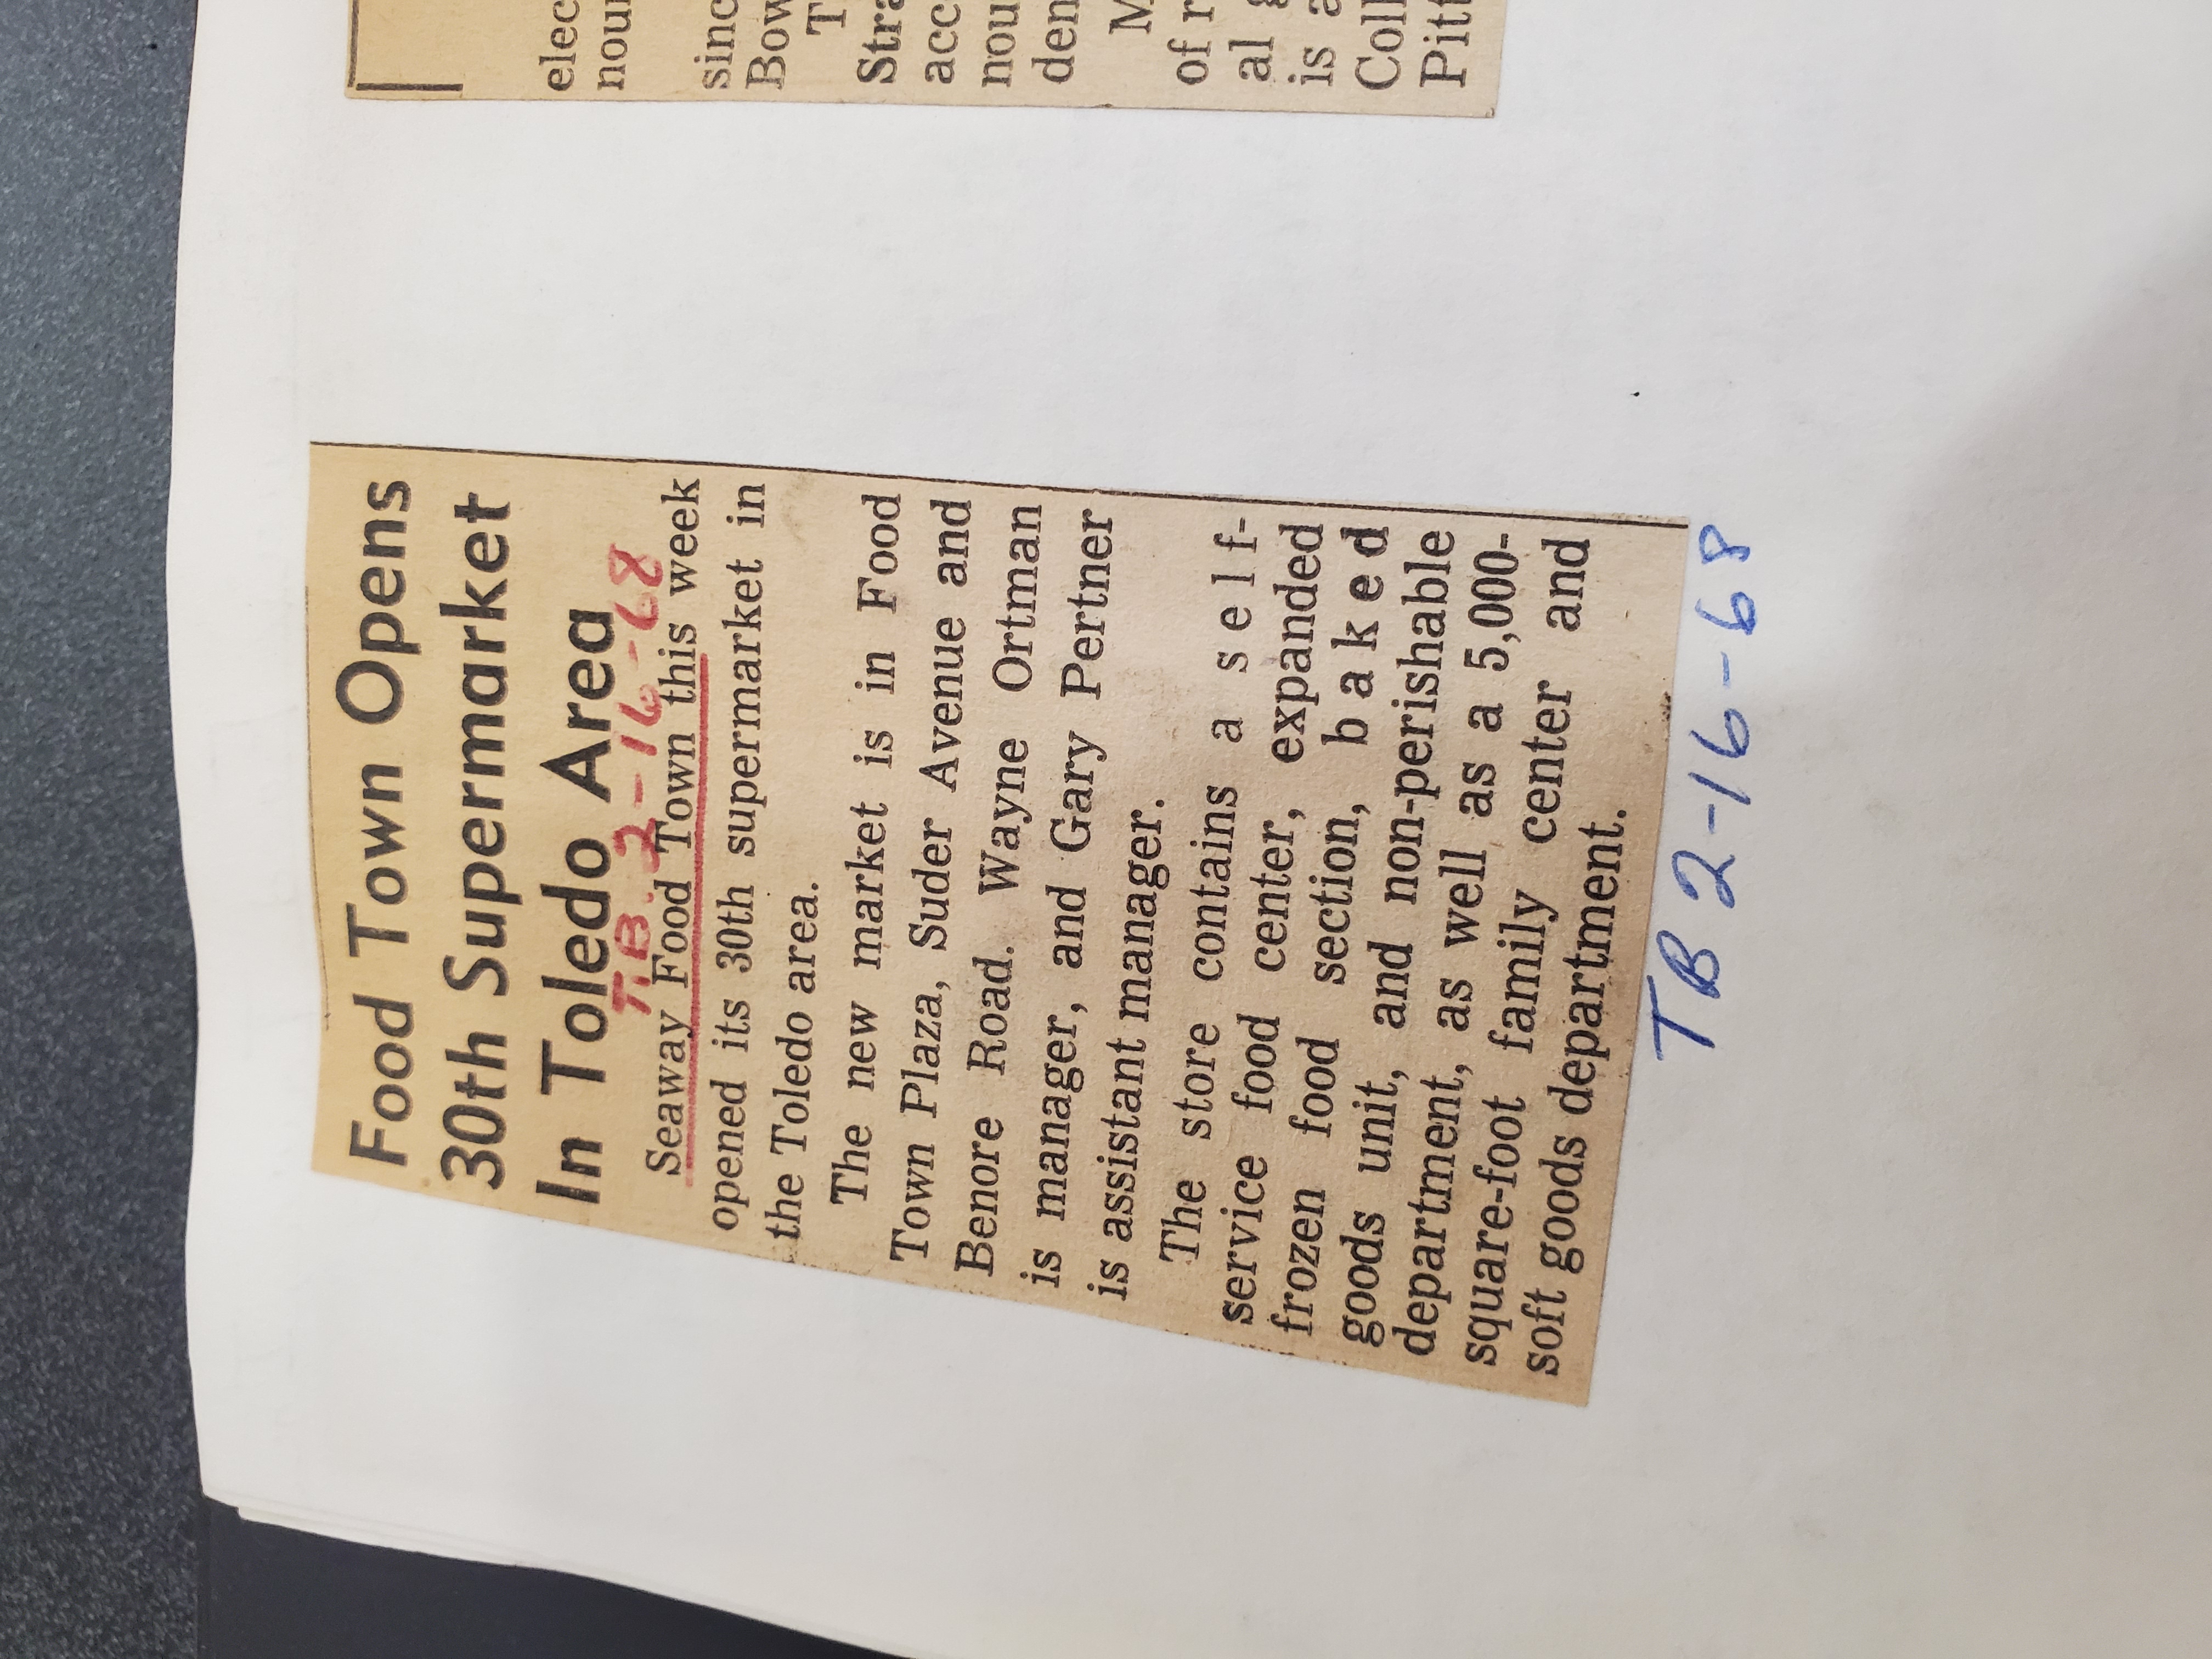 Food Town Opens
30th Supermarket
In Toledo Area
T.B. 2-16-68
Seaway Food Town this week
opened its 30th supermarket in
the Toledo area.
The new market is in Food
Town Plaza, Suder Avenue and
Benore Road. Wayne Ortman
is manager, and Gary Pertner
is assistant manager.
The store contains a self-
service food center, expanded
frozen food section, baked
goods unit, and non-perishable
department, as well as a 5,000-
square-foot family center and
soft goods department.
TB 2-16-68
elec
nour
sinc
Bow
T
Stra
acc
nou
den
M
of r
al g
is a
Coll
Pitt